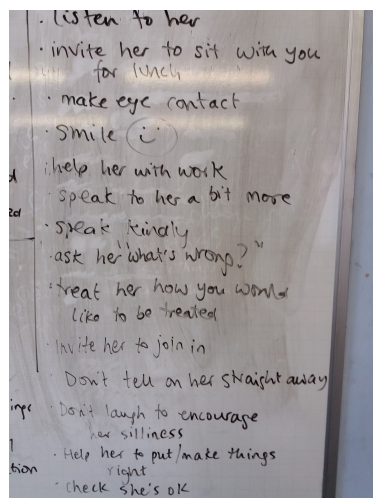 · listen to her
· invite her to sit with you
for lunch
· make eye contact
· smile
· help her with work
· speak to her a bit more
· speak kindly
· ask her "what's wrong?"
· treat her how you would
like to be treated
· Invite her to join in
· Don't tell on her straight away
· Don't laugh to encourage
her silliness
· Help her to put/make things
right
· Check she's ok